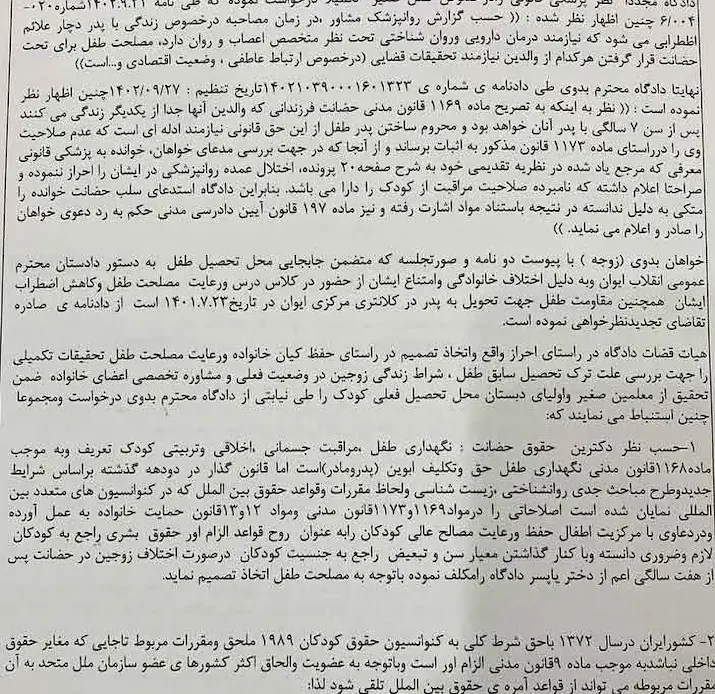 دادگاه مجددا نظر پزشکی قانونی را در خصوص طفل صغیر درخواست نموده که طی نامه ۱۴۰۲.۹.۲۱ شماره ۰۲۰-
۶/۰۰۴ چنین اظهار نظر شده : (( حسب گزارش روانپزشک مشاور ،در زمان مصاحبه درخصوص زندگی با پدر دچار علائم
اظطرابی می شود که نیازمند درمان دارویی وروان شناختی تحت نظر متخصص اعصاب و روان دارد، مصلحت طفل برای تحت
حضانت قرار گرفتن هرکدام از والدین نیازمند تحقیقات قضایی (درخصوص ارتباط عاطفی ، وضعیت اقتصادی و...است))
نهایتا دادگاه محترم بدوی طی دادنامه ی شماره ی ۱۴۰۲۱۰۳۹۰۰۰۱۶۰۱۳۲۳تاریخ تنظیم : ۱۴۰۲/۰۹/۲۷چنین اظهار نظر
نموده است : (( نظر به اینکه به تصریح ماده ۱۱۶۹ قانون مدنی حضانت فرزندانی که والدین آنها جدا از یکدیگر زندگی می کنند
پس از سن ۷ سالگی با پدر آنان خواهد بود و محروم ساختن پدر طفل از این حق قانونی نیازمند ادله ای است که عدم صلاحیت
وی را درراستای ماده ۱۱۷۳ قانون مذکور به اثبات برساند و از آنجا که در جهت بررسی مدعای خواهان، خوانده به پزشکی قانونی
معرفی که مرجع یاد شده در نظریه تقدیمی خود به شرح صفحه۲۰ پرونده، اختلال عمده روانپزشکی در ایشان را احراز ننموده و
صراحتا اعلام داشته که نامبرده صلاحیت مراقبت از کودک را دارا می باشد. بنابراین دادگاه استدعای سلب حضانت خوانده را
متکی به دلیل ندانسته در نتیجه باستناد مواد اشارت رفته و نیز ماده ۱۹۷ قانون آیین دادرسی مدنی حکم به رد دعوی خواهان
را صادر و اعلام می نماید. ))
خواهان بدوی (زوجه ) با پیوست دو نامه و صورتجلسه که متضمن جابجایی محل تحصیل طفل به دستور دادستان محترم
عمومی انقلاب ایوان وبه دلیل اختلاف خانوادگی وامتناع ایشان از حضور در کلاس درس ورعایت مصلحت طفل وکاهش اضطراب
ایشان همچنین مقاومت طفل جهت تحویل به پدر در کلانتری مرکزی ایوان در تاریخ۱۴۰۱.۷.۲۳ است از دادنامه ی صادره
تقاضای تجدیدنظرخواهی نموده است.
هیات قضات دادگاه در راستای احراز واقع واتخاذ تصمیم در راستای حفظ کیان خانواده ورعایت مصلحت طفل تحقیقات تکمیلی
را جهت بررسی علت ترک تحصیل سابق طفل ، شراط زندگی زوجین در وضعیت فعلی و مشاوره تخصصی اعضای خانواده ضمن
تحقیق از معلمین صغیر واولیای دبستان محل تحصیل فعلی کودک را طی نیابتی از دادگاه محترم بدوی درخواست ومجموعا
چنین استنباط می نمایند که:
۱-حسب نظر دکترین حقوق حضانت : نگهداری طفل ،مراقبت جسمانی ،اخلاقی وتربیتی کودک تعریف وبه موجب
ماده۱۱۶۸قانون مدنی نگهداری طفل حق وتکلیف ابوین (پدرومادر)است اما قانون گذار در دودهه گذشته براساس شرایط
جدیدوطرح مباحث جدی روانشناختی ،زیست شناسی ولحاظ مقررات وقواعد حقوق بین الملل که در کنوانسیون های متعدد بین
المللی نمایان شده است اصلاحاتی را درمواد۱۱۶۹و۱۱۷۳قانون مدنی ومواد ۱۲و۱۳قانون حمایت خانواده به عمل آورده
ودردعاوی با مرکزیت اطفال حفظ ورعایت مصالح عالی کودکان رابه عنوان روح قواعد الزام اور حقوق بشری راجع به کودکان
لازم وضروری دانسته وبا کنار گذاشتن معیار سن و تبعیض راجع به جنسیت کودکان درصورت اختلاف زوجین در حضانت پس
از هفت سالگی اعم از دختر یاپسر دادگاه رامکلف نموده باتوجه به مصلحت طفل اتخاذ تصمیم نماید.
۲- کشورایران درسال ۱۳۷۲ باحق شرط کلی به کنوانسیون حقوق کودکان ۱۹۸۹ ملحق ومقررات مربوط تاجایی که مغایر حقوق
داخلی نباشدبه موجب ماده ۹قانون مدنی الزام اور است وباتوجه به عضویت والحاق اکثر کشورها ی عضو سازمان ملل متحد به آن
مقررات مربوطه می تواند از قواعد آمره ی حقوق بین الملل تلقی شود لذا: